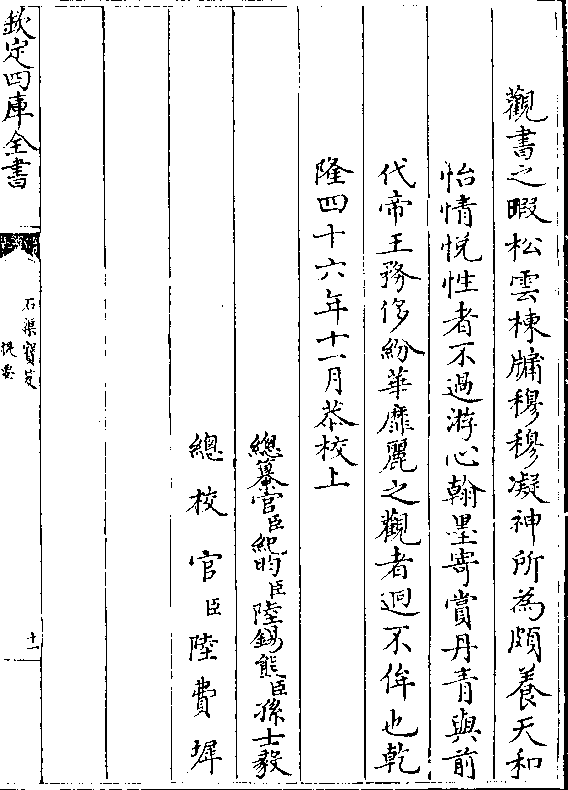 觀書之暇松雲棟牖穆穆凝神所為頤養天和
怡情悅性者不過游心翰墨寄賞丹青與前
代帝王務侈紛華靡麗之觀者迥不侔也乾
隆四十六年十一月恭校上
總纂官臣紀昀臣陸錫熊臣孫士毅
總校官臣陸費墀
欽定四庫全書
石渠寶笈
提要
十一